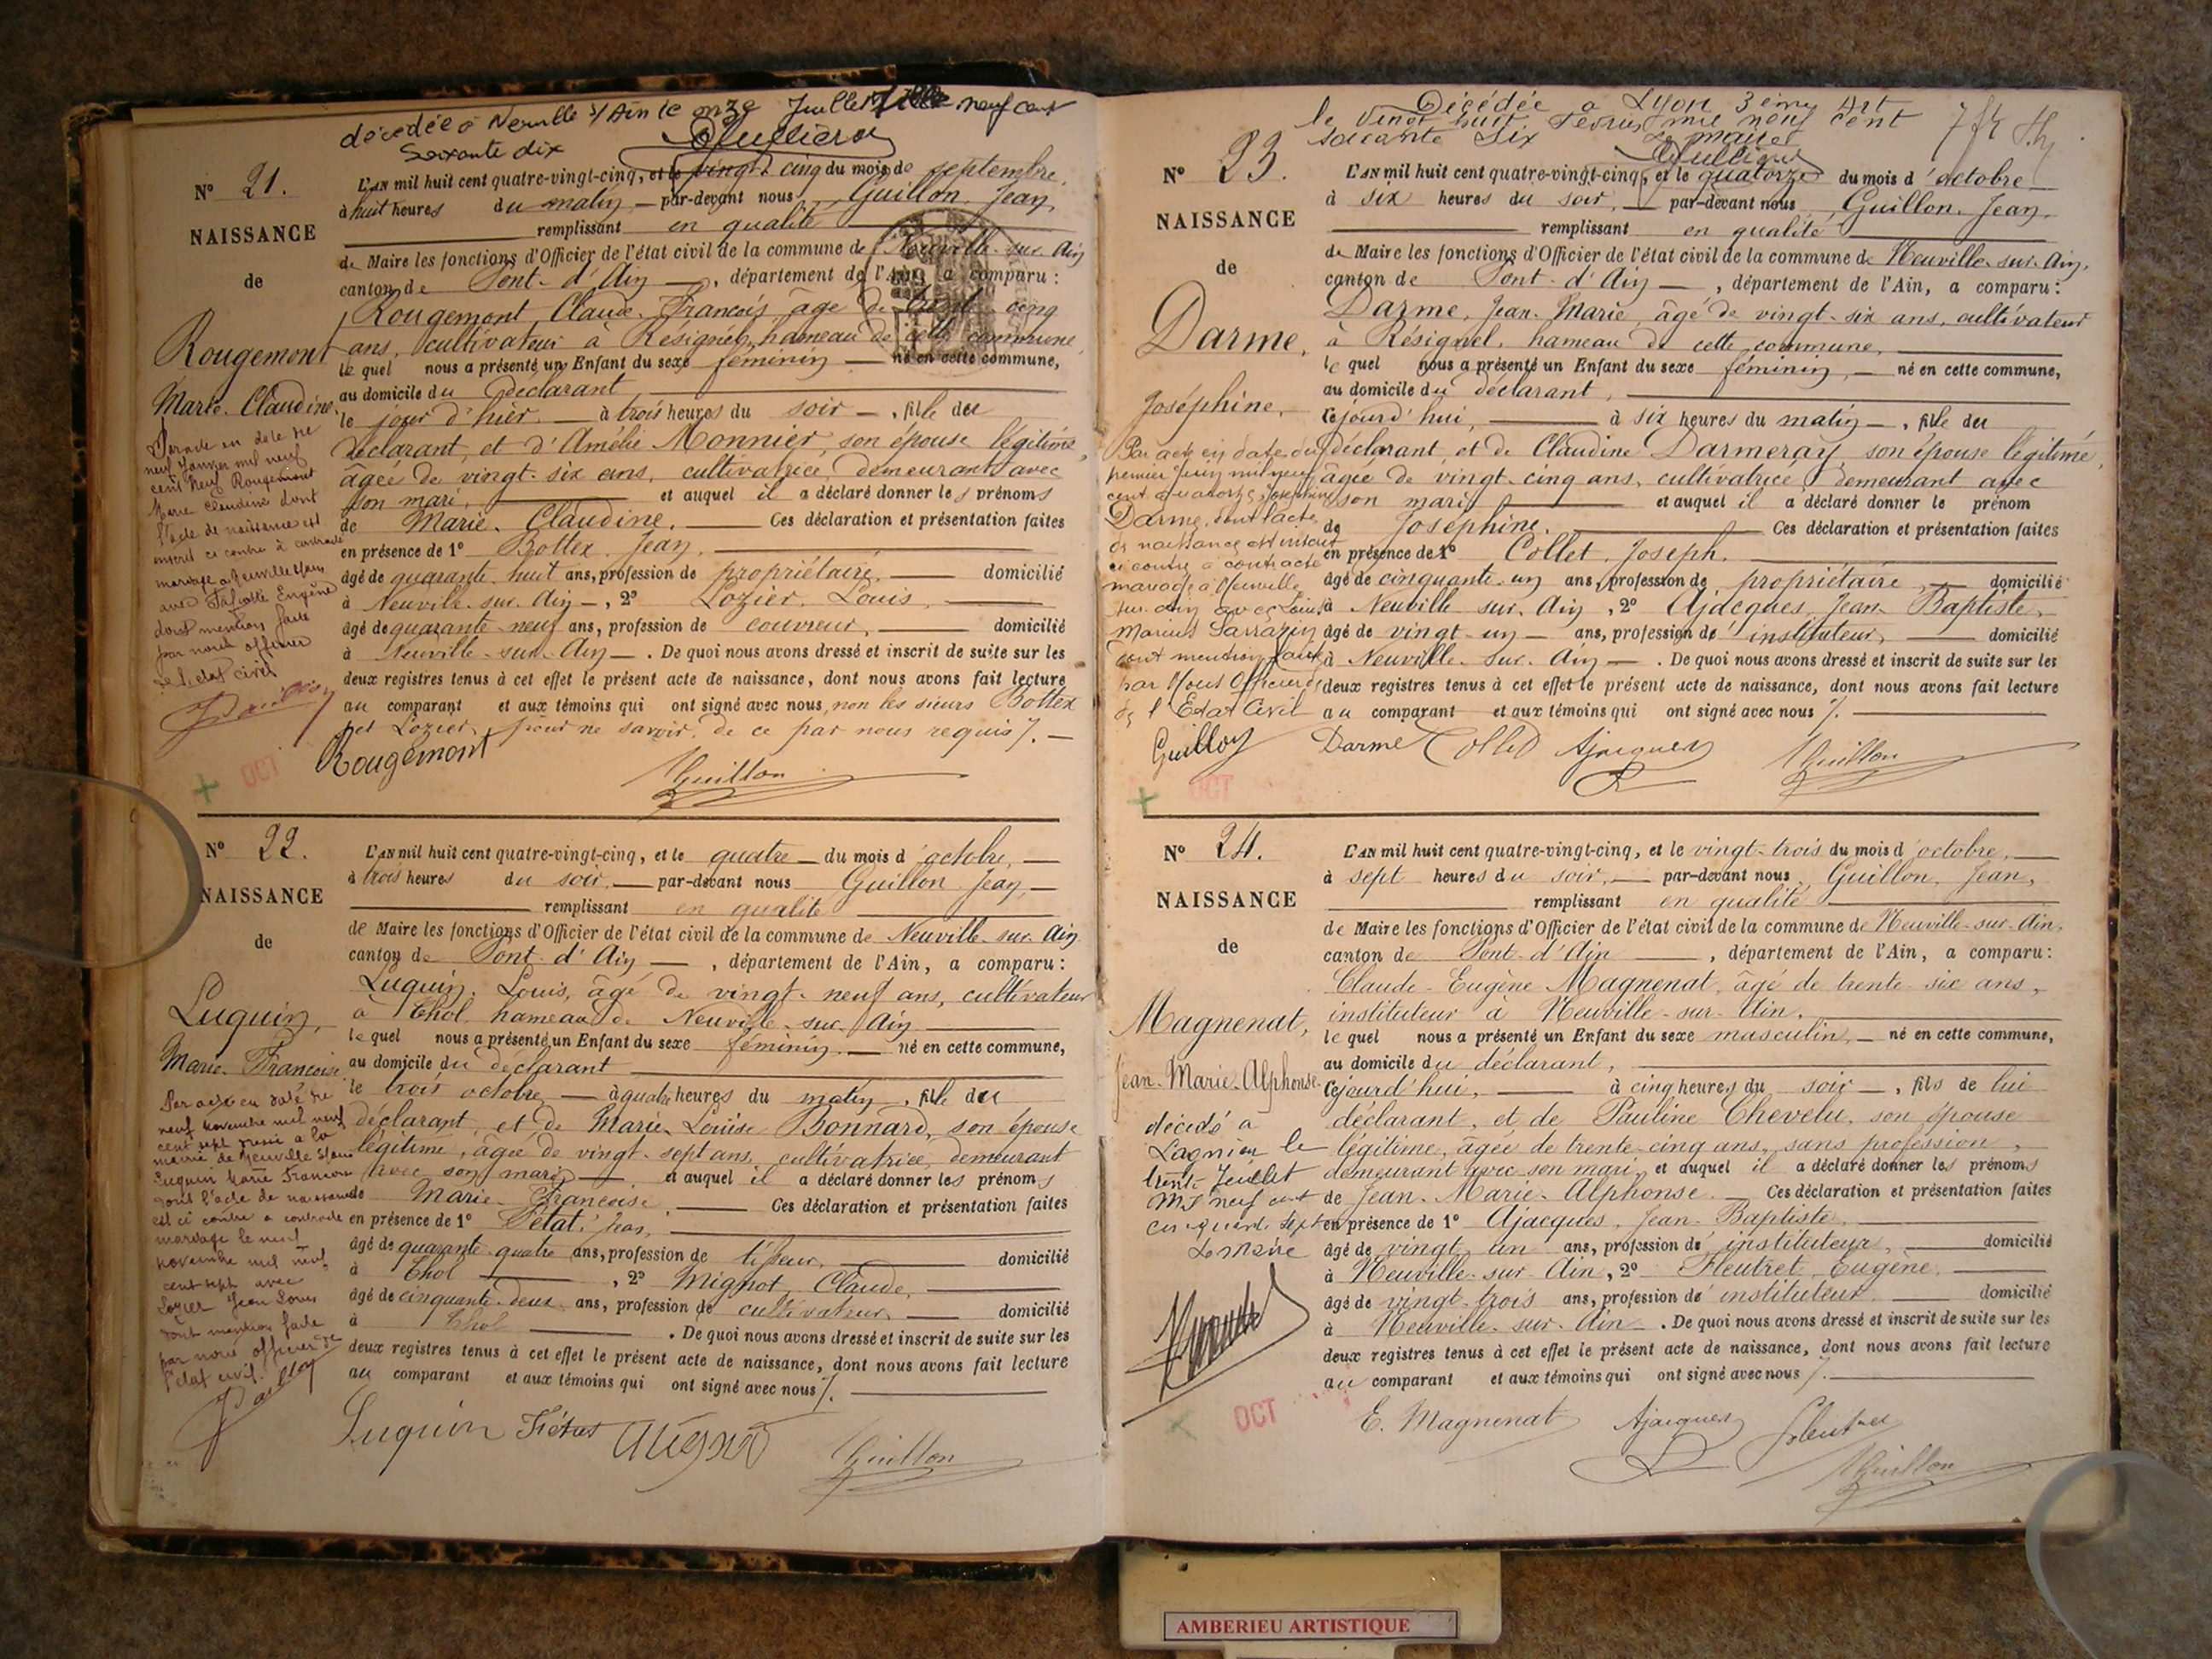 décédée à Neuville s/Ain le onze Juillet mille neuf cent
Soixante dix
N° 21.
NAISSANCE
de
Rougemont
Marie-Claudine.
neuf Janvier mil neuf
cent neuf Rougemont
Marie Claudine dont
l'acte de naissance est
inscrit ci contre à contracté
mariage à Neuville s/Ain
avec Eugène
dont mention faite
par nous officier
de l'état civil
L'AN mil huit cent quatre-vingt-cinq, et le vingt cinq du mois de septembre,
à huit heures du matin — par-devant nous Guillon, Jean,
remplissant en qualité
de Maire les fonctions d'Officier de l'état civil de la commune de Neuville-sur-Ain
canton de Pont-d'Ain —, département de l'Ain, a comparu :
Rougemont Claude-François âgé de trente cinq
ans, cultivateur à Résignel, hameau de cette commune,
lequel nous a présenté un Enfant du sexe féminin — né en cette commune,
au domicile du déclarant
le jour d'hier — à trois heures du soir —, fille du
déclarant, et d'Amélie Monnier, son épouse légitime,
âgée de vingt-six ans, cultivatrice, demeurant avec
son mari, et auquel il a déclaré donner les prénoms
de Marie-Claudine. Ces déclaration et présentation faites
en présence de 1° Bottex, Jean,
âgé de quarante-huit ans, profession de propriétaire, domicilié
à Neuville-sur-Ain —, 2° Lozier, Louis,
âgé de quarante-neuf ans, profession de couvreur, domicilié
à Neuville-sur-Ain —. De quoi nous avons dressé et inscrit de suite sur les
deux registres tenus à cet effet le présent acte de naissance, dont nous avons fait lecture
au comparant et aux témoins qui ont signé avec nous, non les sieurs Bottex
et Lozier, pour ne savoir, de ce par nous requis /. —
Rougemont
Guillon
OCT
N° 22.
NAISSANCE
de
Luquin,
Marie-Françoise
Par acte en date du
neuf novembre mil neuf
cent sept passé à la
mairie de Neuville s/Ain
Luquin Marie Françoise
dont l'acte de naissance
est ci contre a contracté
mariage le neuf
novembre mil neuf
cent sept avec
Lozier Jean Louis
dont mention faite
par nous officier de
l'état civil.
L'AN mil huit cent quatre-vingt-cinq, et le quatre — du mois d'octobre, —
à trois heures du soir, — par-devant nous Guillon Jean, —
remplissant en qualité
de Maire les fonctions d'Officier de l'état civil de la commune de Neuville-sur-Ain
canton de Pont-d'Ain —, département de l'Ain, a comparu :
Luquin, Louis, âgé de vingt-neuf ans, cultivateur
à Thol, hameau de Neuville-sur-Ain
lequel nous a présenté un Enfant du sexe féminin, — né en cette commune,
au domicile du déclarant
le trois octobre — à quatre heures du matin, fille du
déclarant, et de Marie-Louise Bonnard, son épouse
légitime, âgée de vingt-sept ans, cultivatrice, demeurant
avec son mari —, et auquel il a déclaré donner les prénoms
de Marie-Françoise. Ces déclaration et présentation faites
en présence de 1° Fétat, Jean,
âgé de quarante-quatre ans, profession de domicilié
à Thol, 2° Mignot, Claude,
âgé de cinquante-deux ans, profession de cultivateur, domicilié
à Thol. De quoi nous avons dressé et inscrit de suite sur les
deux registres tenus à cet effet le présent acte de naissance, dont nous avons fait lecture
au comparant et aux témoins qui ont signé avec nous /.
Luquin
Guillon
Décédée à Lyon 3ème Art
le vingt huit Février mil neuf cent
soixante six
Le maire
N° 23.
NAISSANCE
de
Darme,
Joséphine,
Par acte en date du
premier Juin mil neuf
cent quatorze, Joséphine
Darme, dont l'acte
de naissance est inscrit
ci contre a contracté
mariage à Neuville
sur Ain avec Louis
Marius Sarrazin
dont mention faite
par Nous Officier
de l'Etat Civil
Guillon
L'AN mil huit cent quatre-vingt-cinq, et le quatorze du mois d'octobre —
à six heures du soir, — par-devant nous Guillon, Jean,
remplissant en qualité
de Maire les fonctions d'Officier de l'état civil de la commune de Neuville-sur-Ain,
canton de Pont-d'Ain —, département de l'Ain, a comparu :
Darme, Jean-Marie, âgé de vingt-six ans, cultivateur
à Résignel, hameau de cette commune,
lequel nous a présenté un Enfant du sexe féminin, — né en cette commune,
au domicile du déclarant,
cejourd'hui, à six heures du matin —, fille du
déclarant, et de Claudine Darmeray, son épouse légitime,
âgée de vingt-cinq ans, cultivatrice, demeurant avec
son mari, et auquel il a déclaré donner le prénom
de Joséphine. Ces déclaration et présentation faites
en présence de 1° Collet, Joseph,
âgé de cinquante-un ans, profession de propriétaire, — domicilié
à Neuville sur Ain, 2° Ajacques, Jean-Baptiste,
âgé de vingt-un — ans, profession d'instituteur, domicilié
à Neuville-sur-Ain —. De quoi nous avons dressé et inscrit de suite sur les
deux registres tenus à cet effet le présent acte de naissance, dont nous avons fait lecture
au comparant et aux témoins qui ont signé avec nous /.
Darme Collet Ajacques Guillon
OCT
N° 24.
NAISSANCE
de
Magnenat,
Jean-Marie-Alphonse.
décédé à
Lagnieu le
trente Juillet
mil neuf cent
cinquante sept
Le Maire
L'AN mil huit cent quatre-vingt-cinq, et le vingt-trois du mois d'octobre, —
à sept heures du soir, — par-devant nous Guillon, Jean,
remplissant en qualité
de Maire les fonctions d'Officier de l'état civil de la commune de Neuville-sur-Ain,
canton de Pont-d'Ain, département de l'Ain, a comparu :
Claude-Eugène Magnenat, âgé de trente-six ans,
instituteur à Neuville-sur-Ain,
lequel nous a présenté un Enfant du sexe masculin, — né en cette commune,
au domicile du déclarant,
cejourd'hui, à cinq heures du soir —, fils de lui
déclarant, et de Pauline Chevelu, son épouse
légitime, âgée de trente-cinq ans, sans profession,
demeurant avec son mari, et auquel il a déclaré donner les prénoms
de Jean-Marie-Alphonse. — Ces déclaration et présentation faites
en présence de 1° Ajacques, Jean-Baptiste,
âgé de vingt un ans, profession d'instituteur, domicilié
à Neuville-sur-Ain, 2° Fleutret, Eugène,
âgé de vingt-trois ans, profession d'instituteur domicilié
à Neuville-sur-Ain —. De quoi nous avons dressé et inscrit de suite sur les
deux registres tenus à cet effet le présent acte de naissance, dont nous avons fait lecture
au comparant et aux témoins qui ont signé avec nous /.
E. Magnenat Ajacques Fleutret
Guillon
OCT
AMBERIEU ARTISTIQUE